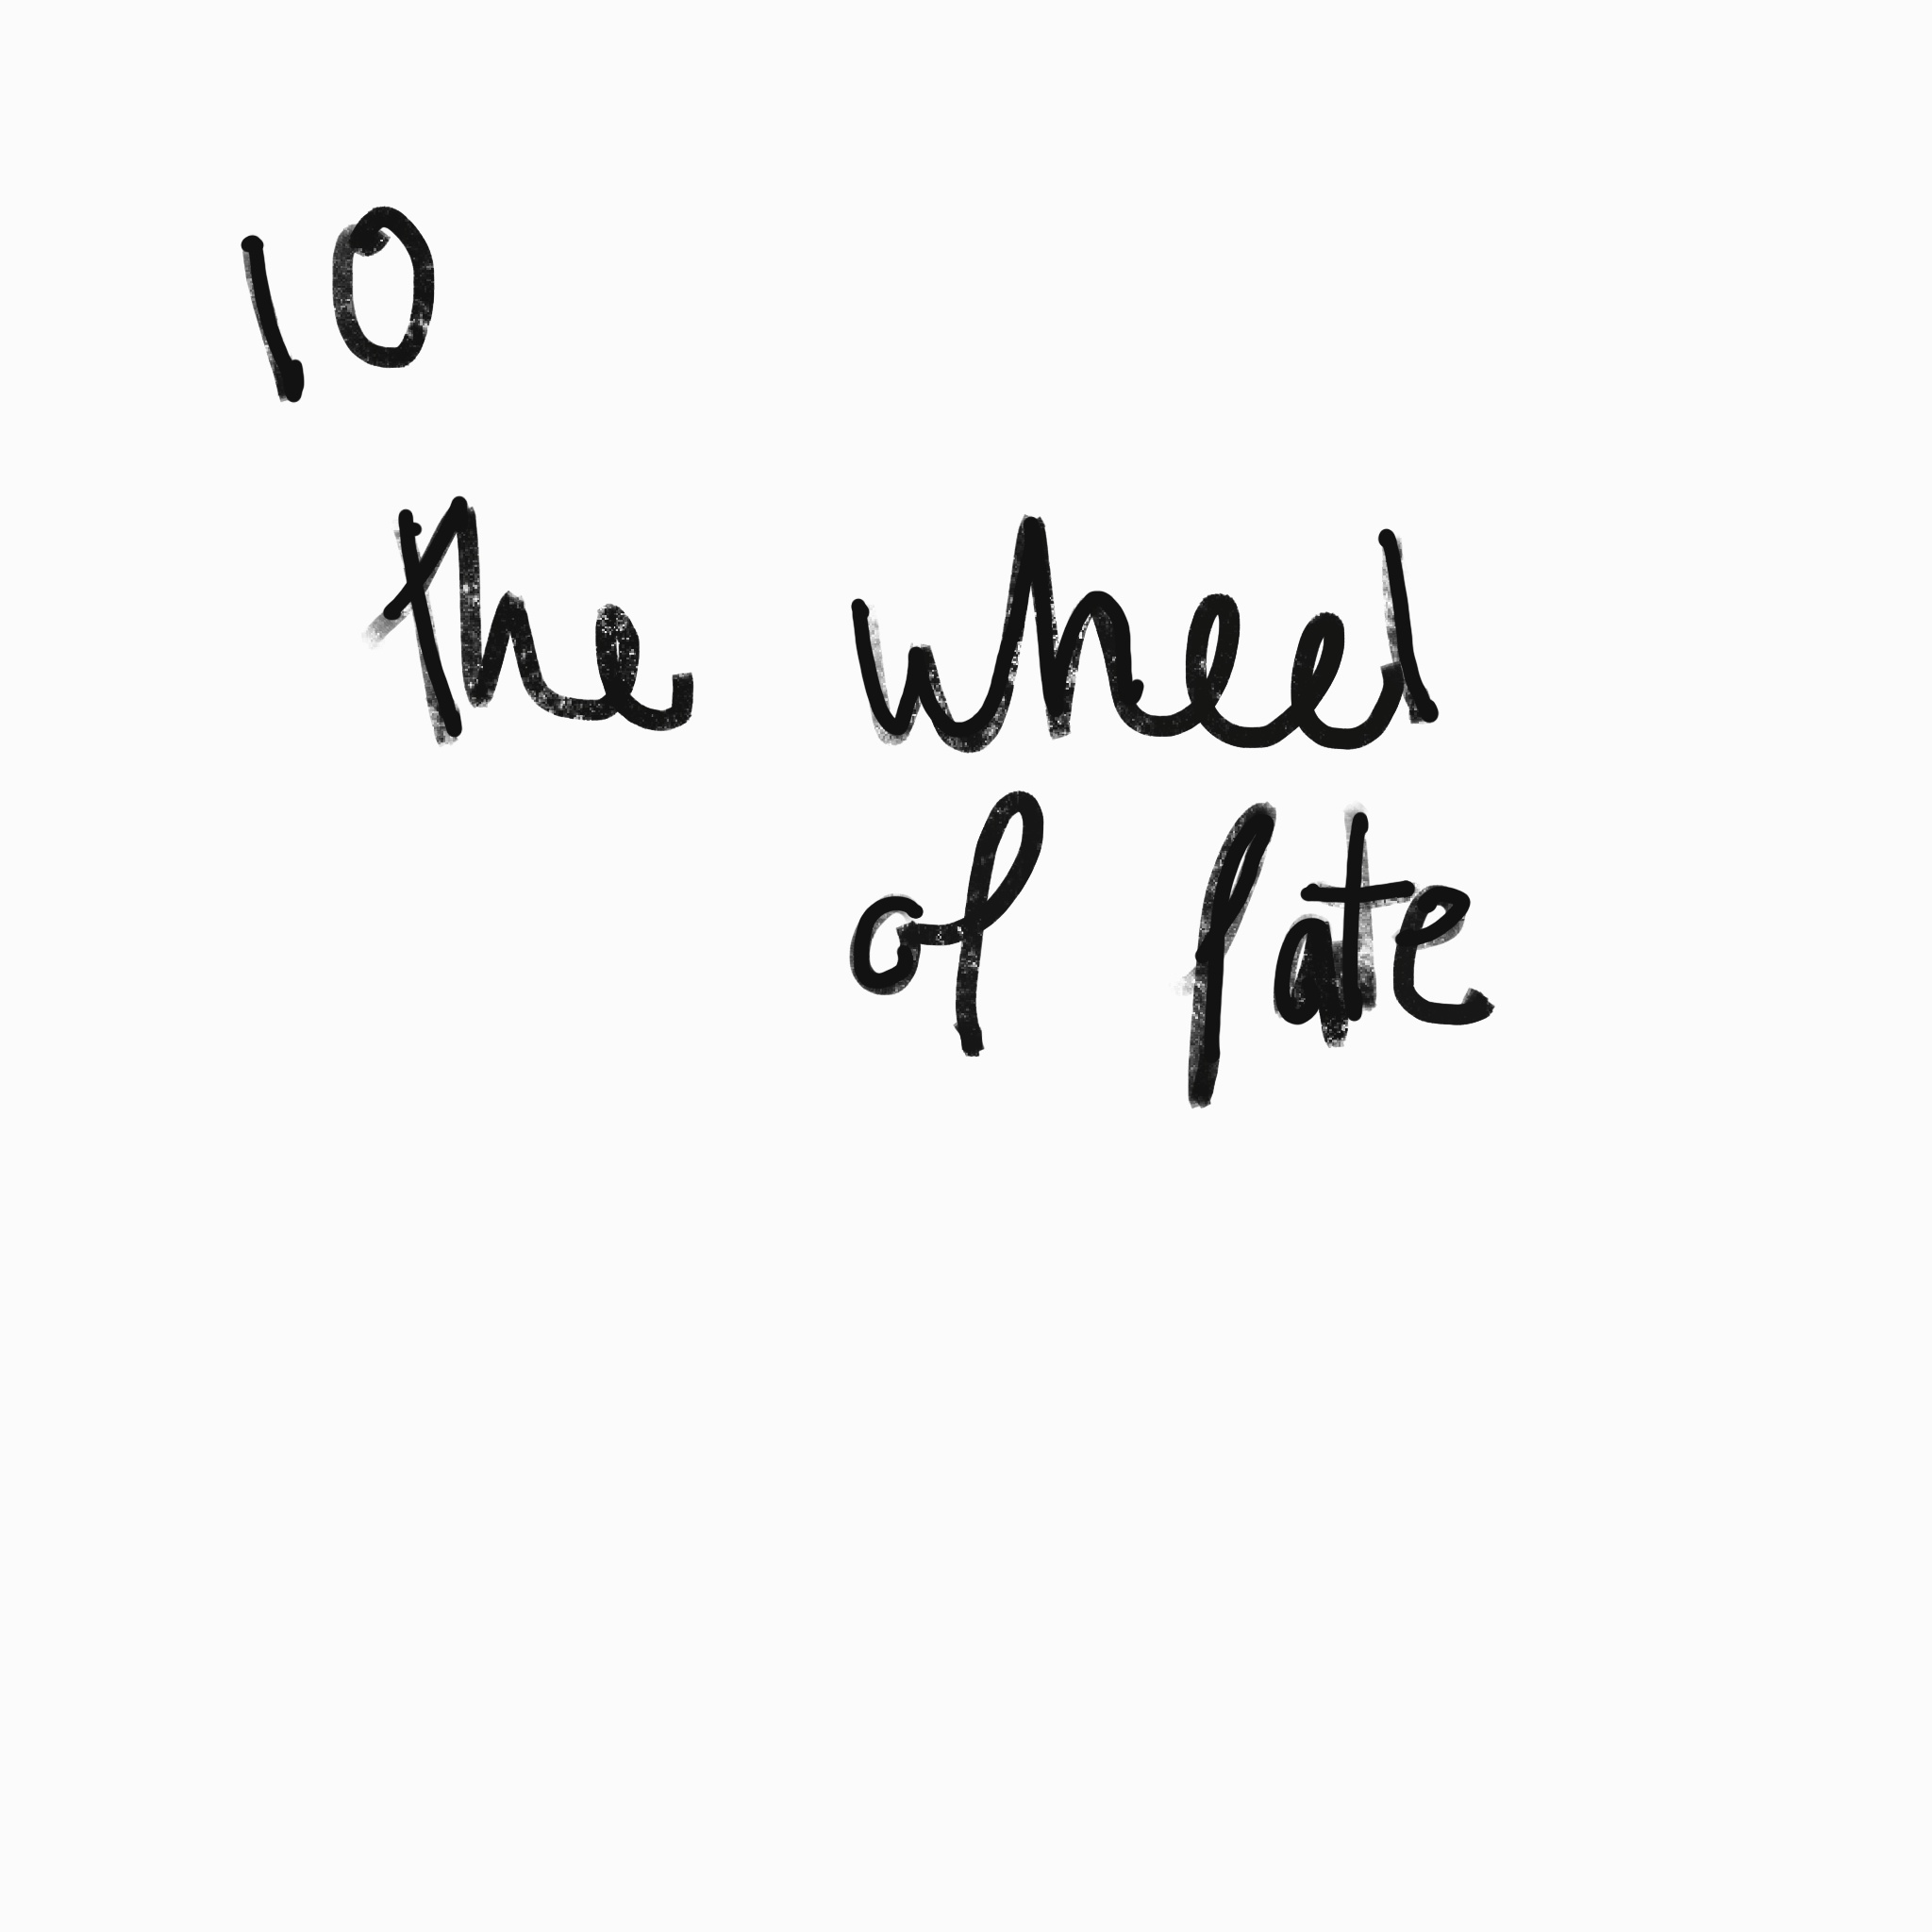 10
the wheel
of fate